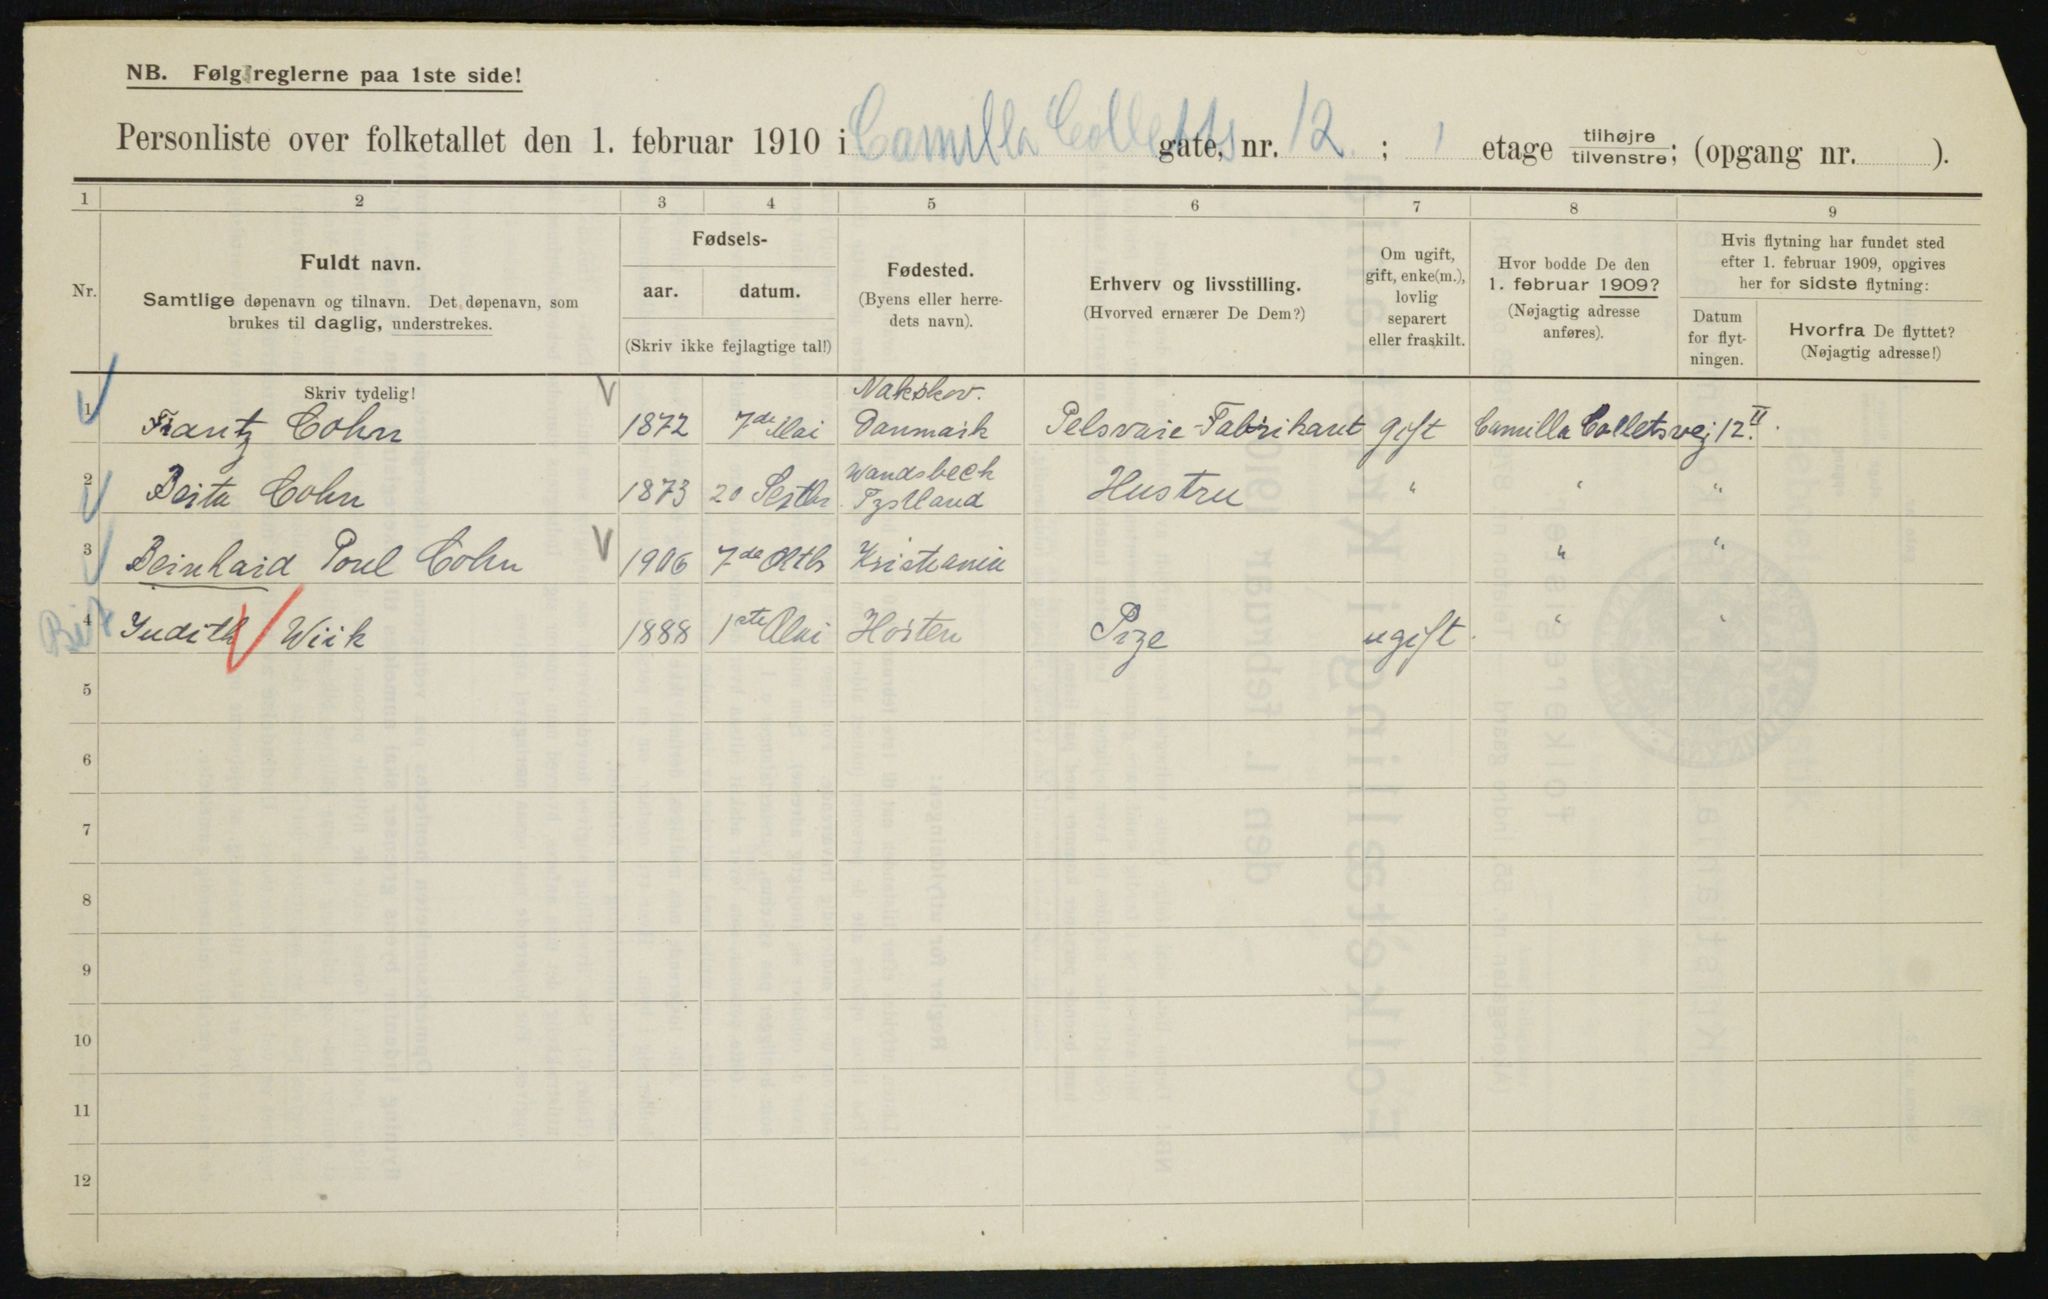 NB. Følg reglerne paa 1ste side!
Personliste over folketallet den 1. februar 1910 i Camilla Colletts gate, nr. 12 ; 1 etage tilhøjre tilvenstre; (opgang nr. ).
1 2 3 4 5 6 7 8 9
Nr.
Fuldt navn.
Samtlige døpenavn og tilnavn. Det døpenavn, som
brukes til daglig, understrekes.
Fødsels-
aar. datum.
(Skriv ikke fejlagtige tal!)
Fødested.
(Byens eller herre-
dets navn).
Erhverv og livsstilling.
(Hvorved ernærer De Dem?)
Om ugift,
gift, enke(m.),
lovlig
separert
eller fraskilt.
Hvor bodde De den
1. februar 1909?
(Nøjagtig adresse
anføres).
Hvis flytning har fundet sted
efter 1. februar 1909, opgives
her for sidste flytning:
Datum
for flyt-
ningen.
Hvorfra De flyttet?
(Nøjagtig adresse!)
Skriv tydelig!
Nakskov.
1 Frantz Cohn 1872 7de Mai Danmark Pelsvare-Fabrikant gift Camilla Colletsvej 12 II.
Wandsbeck
2 Berta Cohn 1873 20 Septbr Tyskland Hustru " " "
3 Bernhard Poul Cohn 1906 7de Oktb Kristiania " "
4 Judith Wiik 1888 1ste Mai Horten Pige ugift. " "
5
6
7
8
9
10
11
12